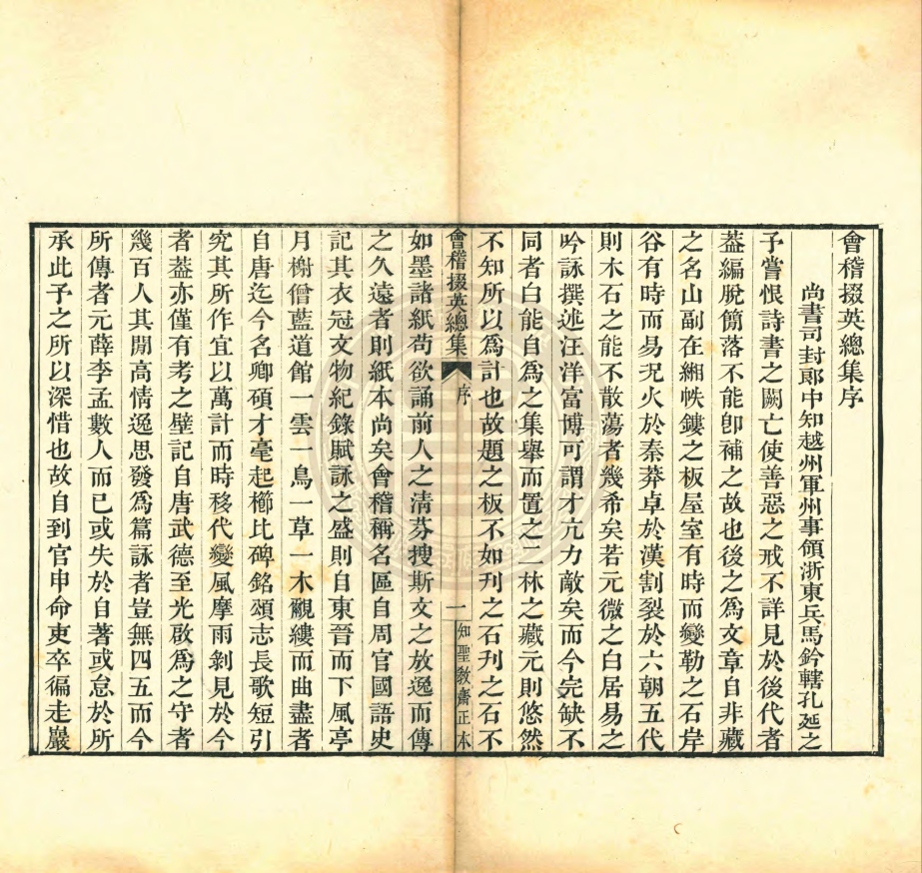 會稽掇英總集序
尚書司封郎中知越州軍州事領浙東兵馬鈐轄孔延之
予嘗恨詩書之闕亡使善惡之戒不詳見於後代者
葢編脫簡落不能卽補之故也後之為文章自非藏
之名山副在緗帙鏤之板屋室有時而變勒之石岸
谷有時而易况火於秦莽卓於漢割裂於六朝五代
則木石之能不散蕩者幾希矣若元微之白居易之
吟詠撰述汪洋富博可謂才亢力敵矣而今完缺不
同者白能自為之集舉而置之二林之藏元則悠然
不知所以為計也故題之板不如刊之石刊之石不
會稽掇英總集
序
一
知聖教齋正本
如墨諸紙苟欲誦前人之清芬搜斯文之放逸而傳
之久遠者則紙本尚矣會稽稱名區自周官國語史
記其衣冠文物紀錄賦詠之盛則自東晉而下風亭
月榭僧藍道館一雲一鳥一草一木覼縷而曲盡者
自唐迄今名卿碩才毫起櫛比碑銘頌志長歌短引
究其所作宜以萬計而時移代變風摩雨剝見於今
者葢亦僅有考之壁記自唐武德至光啟為之守者
幾百人其閒高情逸思發為篇詠者豈無四五而今
所傳者元薛李孟數人而已或失於自著或怠於所
承此予之所以深惜也故自到官申命吏卒徧走巖